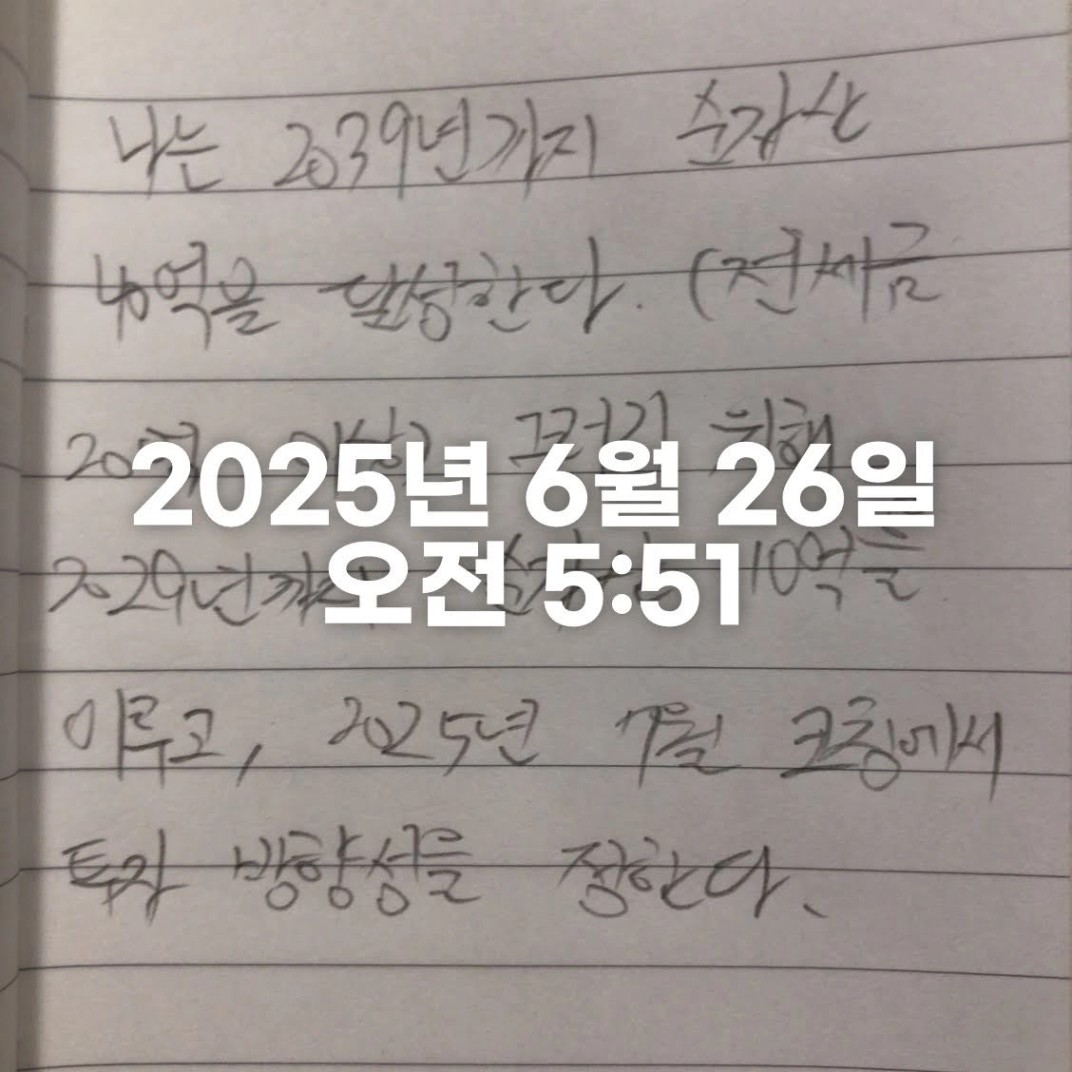 나는 2039년까지 순자산
40억을 달성한다. (전세금
20억 이상) 그러길 위해
2025년 6월 26일
2029년까지 순자산 10억을
오전 5:51
이루고, 2025년 7월 코칭에서
투자 방향성을 정한다.